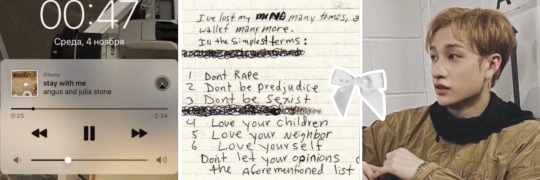 00:47
Среда, 4 ноября
iPhone
stay with me
angus and julia stone
0:25
-2:34
I've lost my MIND many times, a
wallet many more.
In the Simplest terms:
1 Dont RAPE
2 Dont be predjudice
3 Dont be sexist
4 Love your children
5 Love your neighbor
6 Love yourself
Dont let your opinions
the aforementioned list